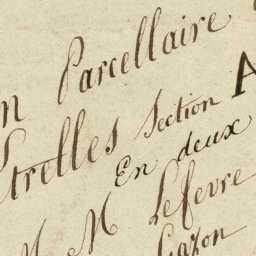 n Parcellaire
trelles Section A
En deux
M. M Lefevre
Gazon